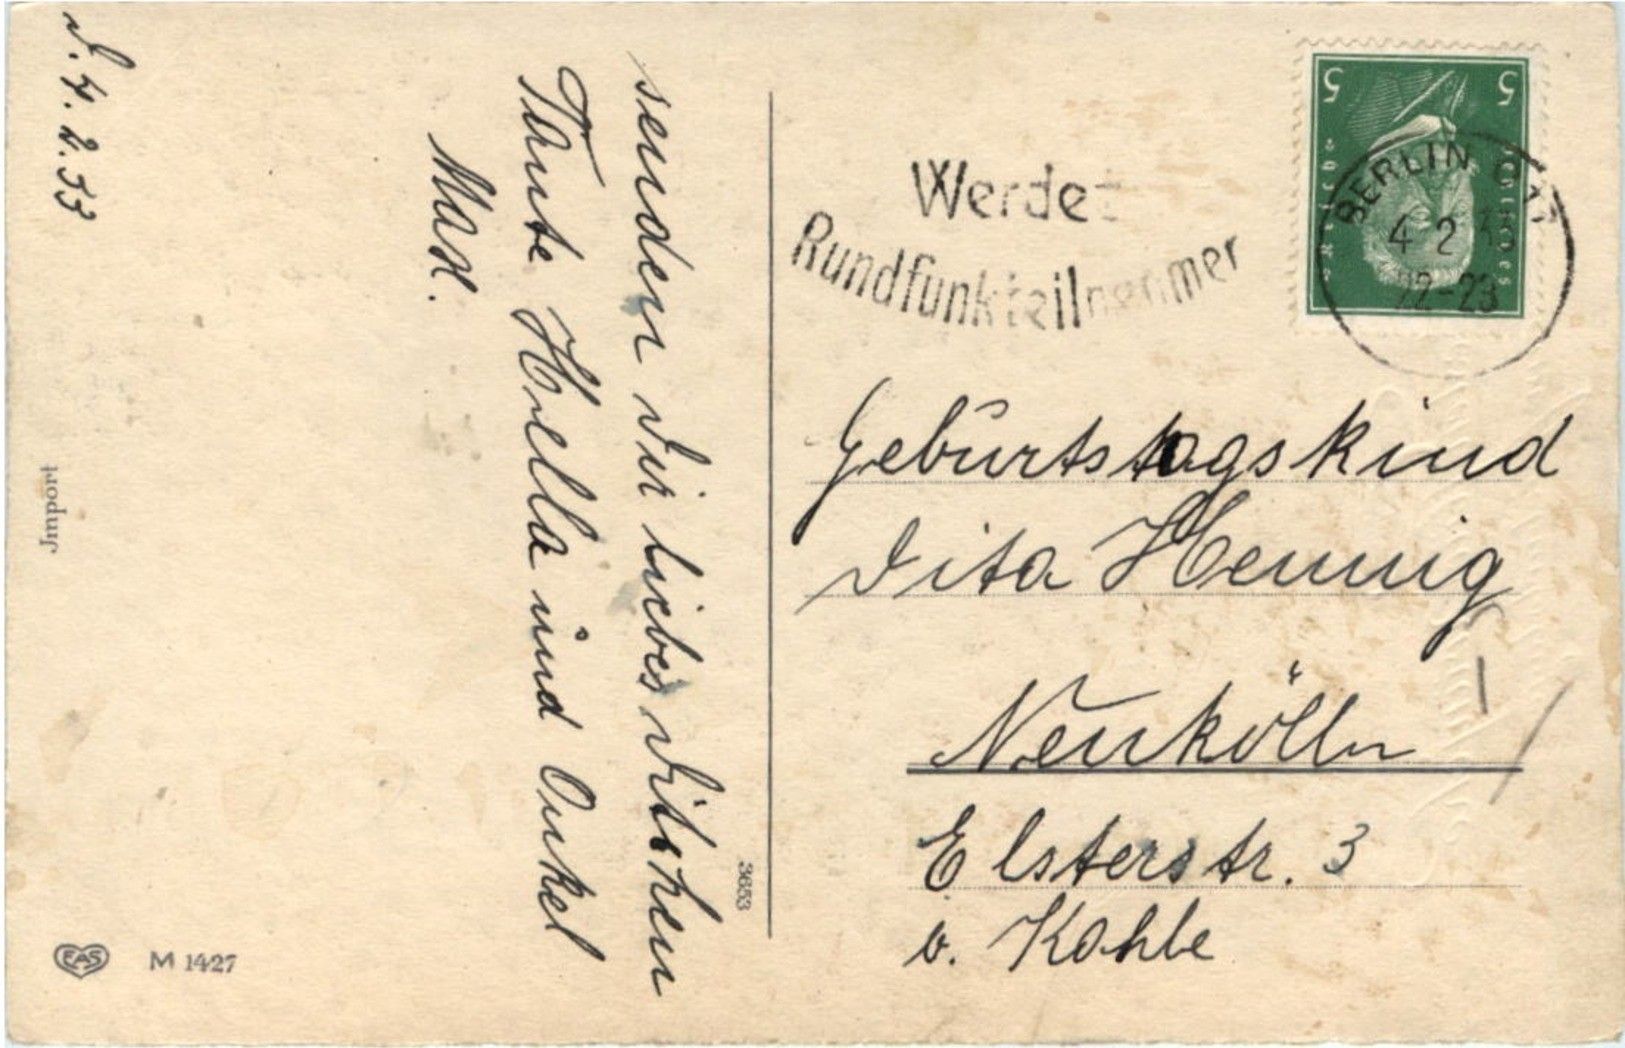 D. 4. 2. 33
senden dir liebes Ditchen
Tante Hella und Onkel
Max.
Import
EAS M 1427
3653
Werdet
Rundfunkteilnehmer
5 5
BERLIN
4 2 33
22-23
Geburtstagskind
Dita Hennig
Neukölln
Elsterstr. 3
b. Kohle